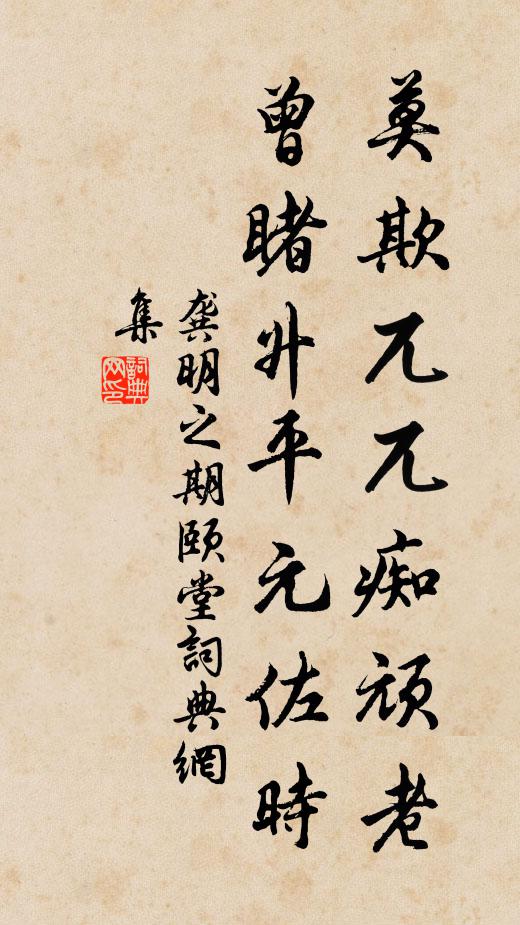 莫欺兀兀痴頑老
曾睹升平元佑時
龔明之期頤堂詞典網
集
詞典
网印